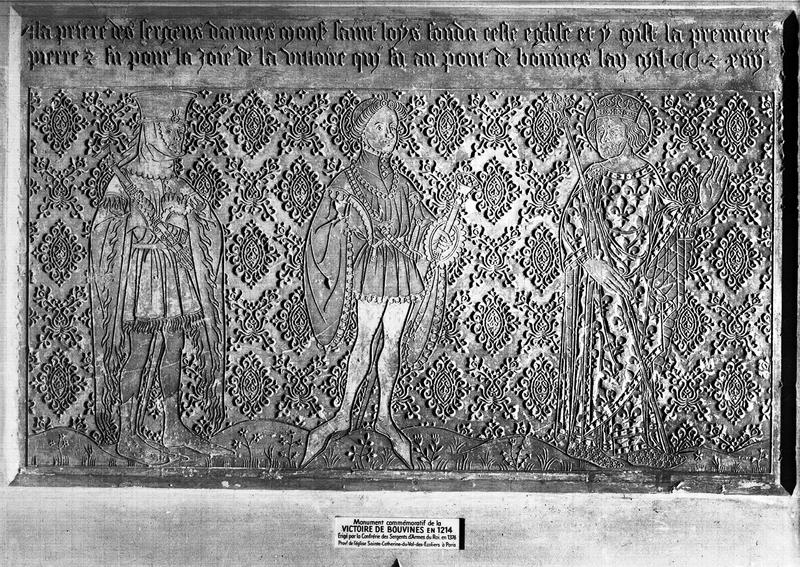 A la priere des sergens darmes mons saint loys fonda ceste eglise et y gist la premiere
pierre & fu pour la joie de la vittoire qui fu au pont de bovines lan mil · CC · & xiiij
Monument commémoratif de la
VICTOIRE DE BOUVINES EN 1214
Érigé par la Confrérie des Sergents d'Armes du Roi, en 1376
Provt de l'église Sainte-Catherine-du-Val-des-Écoliers à Paris